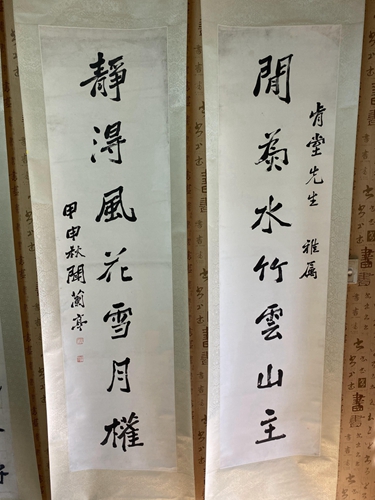 肯堂先生 雅属
閒為水竹雲山主
靜得風花雪月權
甲申秋聞蘭亭